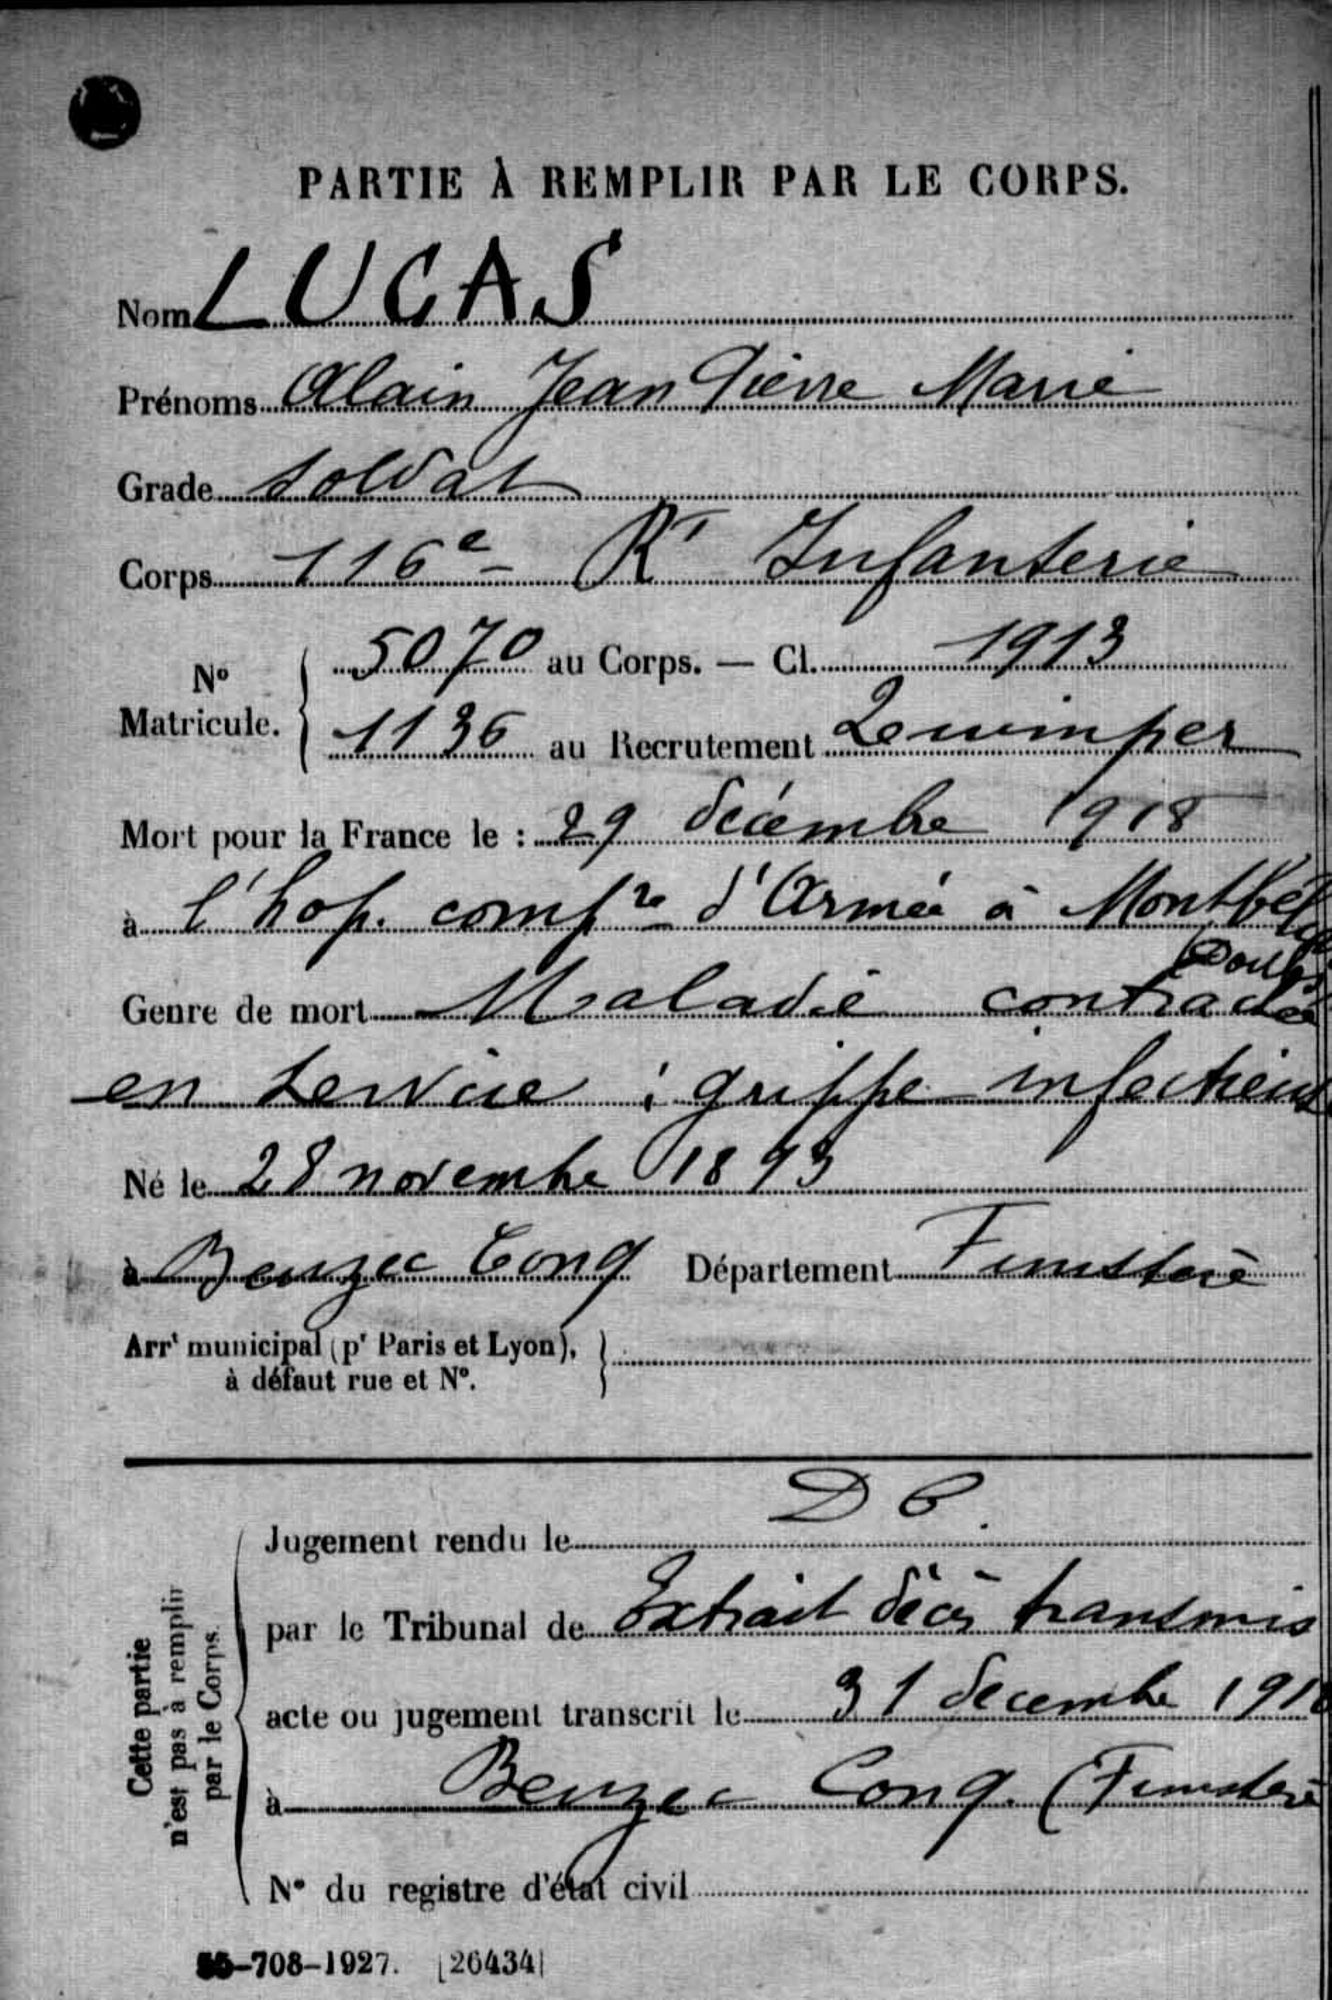 PARTIE À REMPLIR PAR LE CORPS.
Nom LUCAS
Prénoms Alain Jean Pierre Marie
Grade soldat
Corps 116e Rt Infanterie
No Matricule. 5070 au Corps. — Cl. 1913
1136 au Recrutement Quimper
Mort pour la France le : 29 décembre 1918
à l'hop. compre d'Armée à Montbél
(Doubs
Genre de mort Maladie contractée
en service : grippe infectieuse
Né le 28 novembre 1893
à Beuzec Conq Département Finistère
Arrt municipal (pr Paris et Lyon),
à défaut rue et No.
Cette partie
n'est pas à remplir
par le Corps.
D C.
Jugement rendu le
par le Tribunal de Extrait décès transmis
acte ou jugement transcrit le 31 decembre 191
à Beuzec Conq. (Finistère
No du registre d'état civil
-708-1927. [26434]